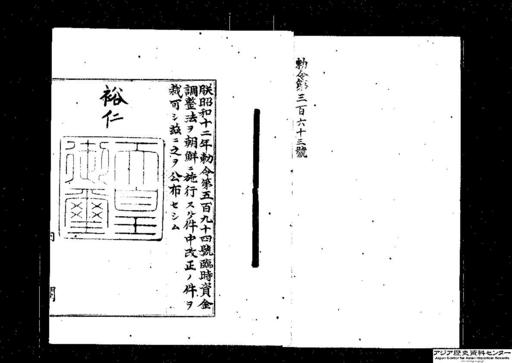 勅令第三百六十三號
朕昭和十二年勅令第五百九十四號臨時資金
調整法ヲ朝鮮ニ施行スル件中改正ノ件ヲ
裁可シ玆ニ之ヲ公布セシム
裕仁
天皇
御璽
内
閣
アジア歴史資料センター
Japan Center for Asian Historical Records